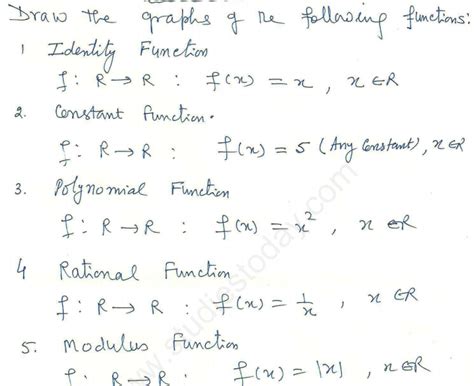 Draw the graphs of the following functions:
1 Identity Function
f : R → R : f(x) = x , x ∈R
2. Constant function.
f : R → R : f(x) = 5 (Any Constant), x ∈R
3. Polynomial Function
f : R → R : f(x) = x² , x ∈R
4 Rational Function
f : R → R : f(x) = 1/x , x ∈R
5. Modulus Function
f : R → R : f(x) = |x| , x ∈R
www.studiestoday.com